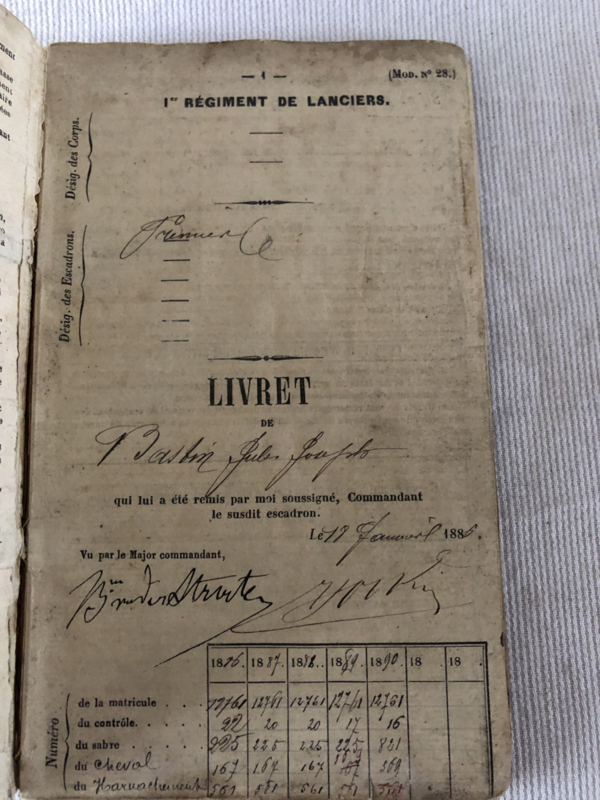 — 1 —
(Mod. N° 28.)
1er RÉGIMENT DE LANCIERS.
Désig. des Corps.
Désig. des Escadrons.
Premier
LIVRET
DE
Bastin Jules Joseph
qui lui a été remis par moi soussigné, Commandant
le susdit escadron.
Le 19 Janvier 1886.
Vu par le Major commandant,
Bon van der Straten
1886. 1887. 1888. 1889. 1890. 18 18 .
Numéro
de la matricule . . . 12761 12761 12761 12761 12761
du contrôle. . . . . 22 20 20 17 16
du sabre . . . . . 225 225 225 225 821
du Cheval 167 167 167 167 369
du Harnachement 561 561 561